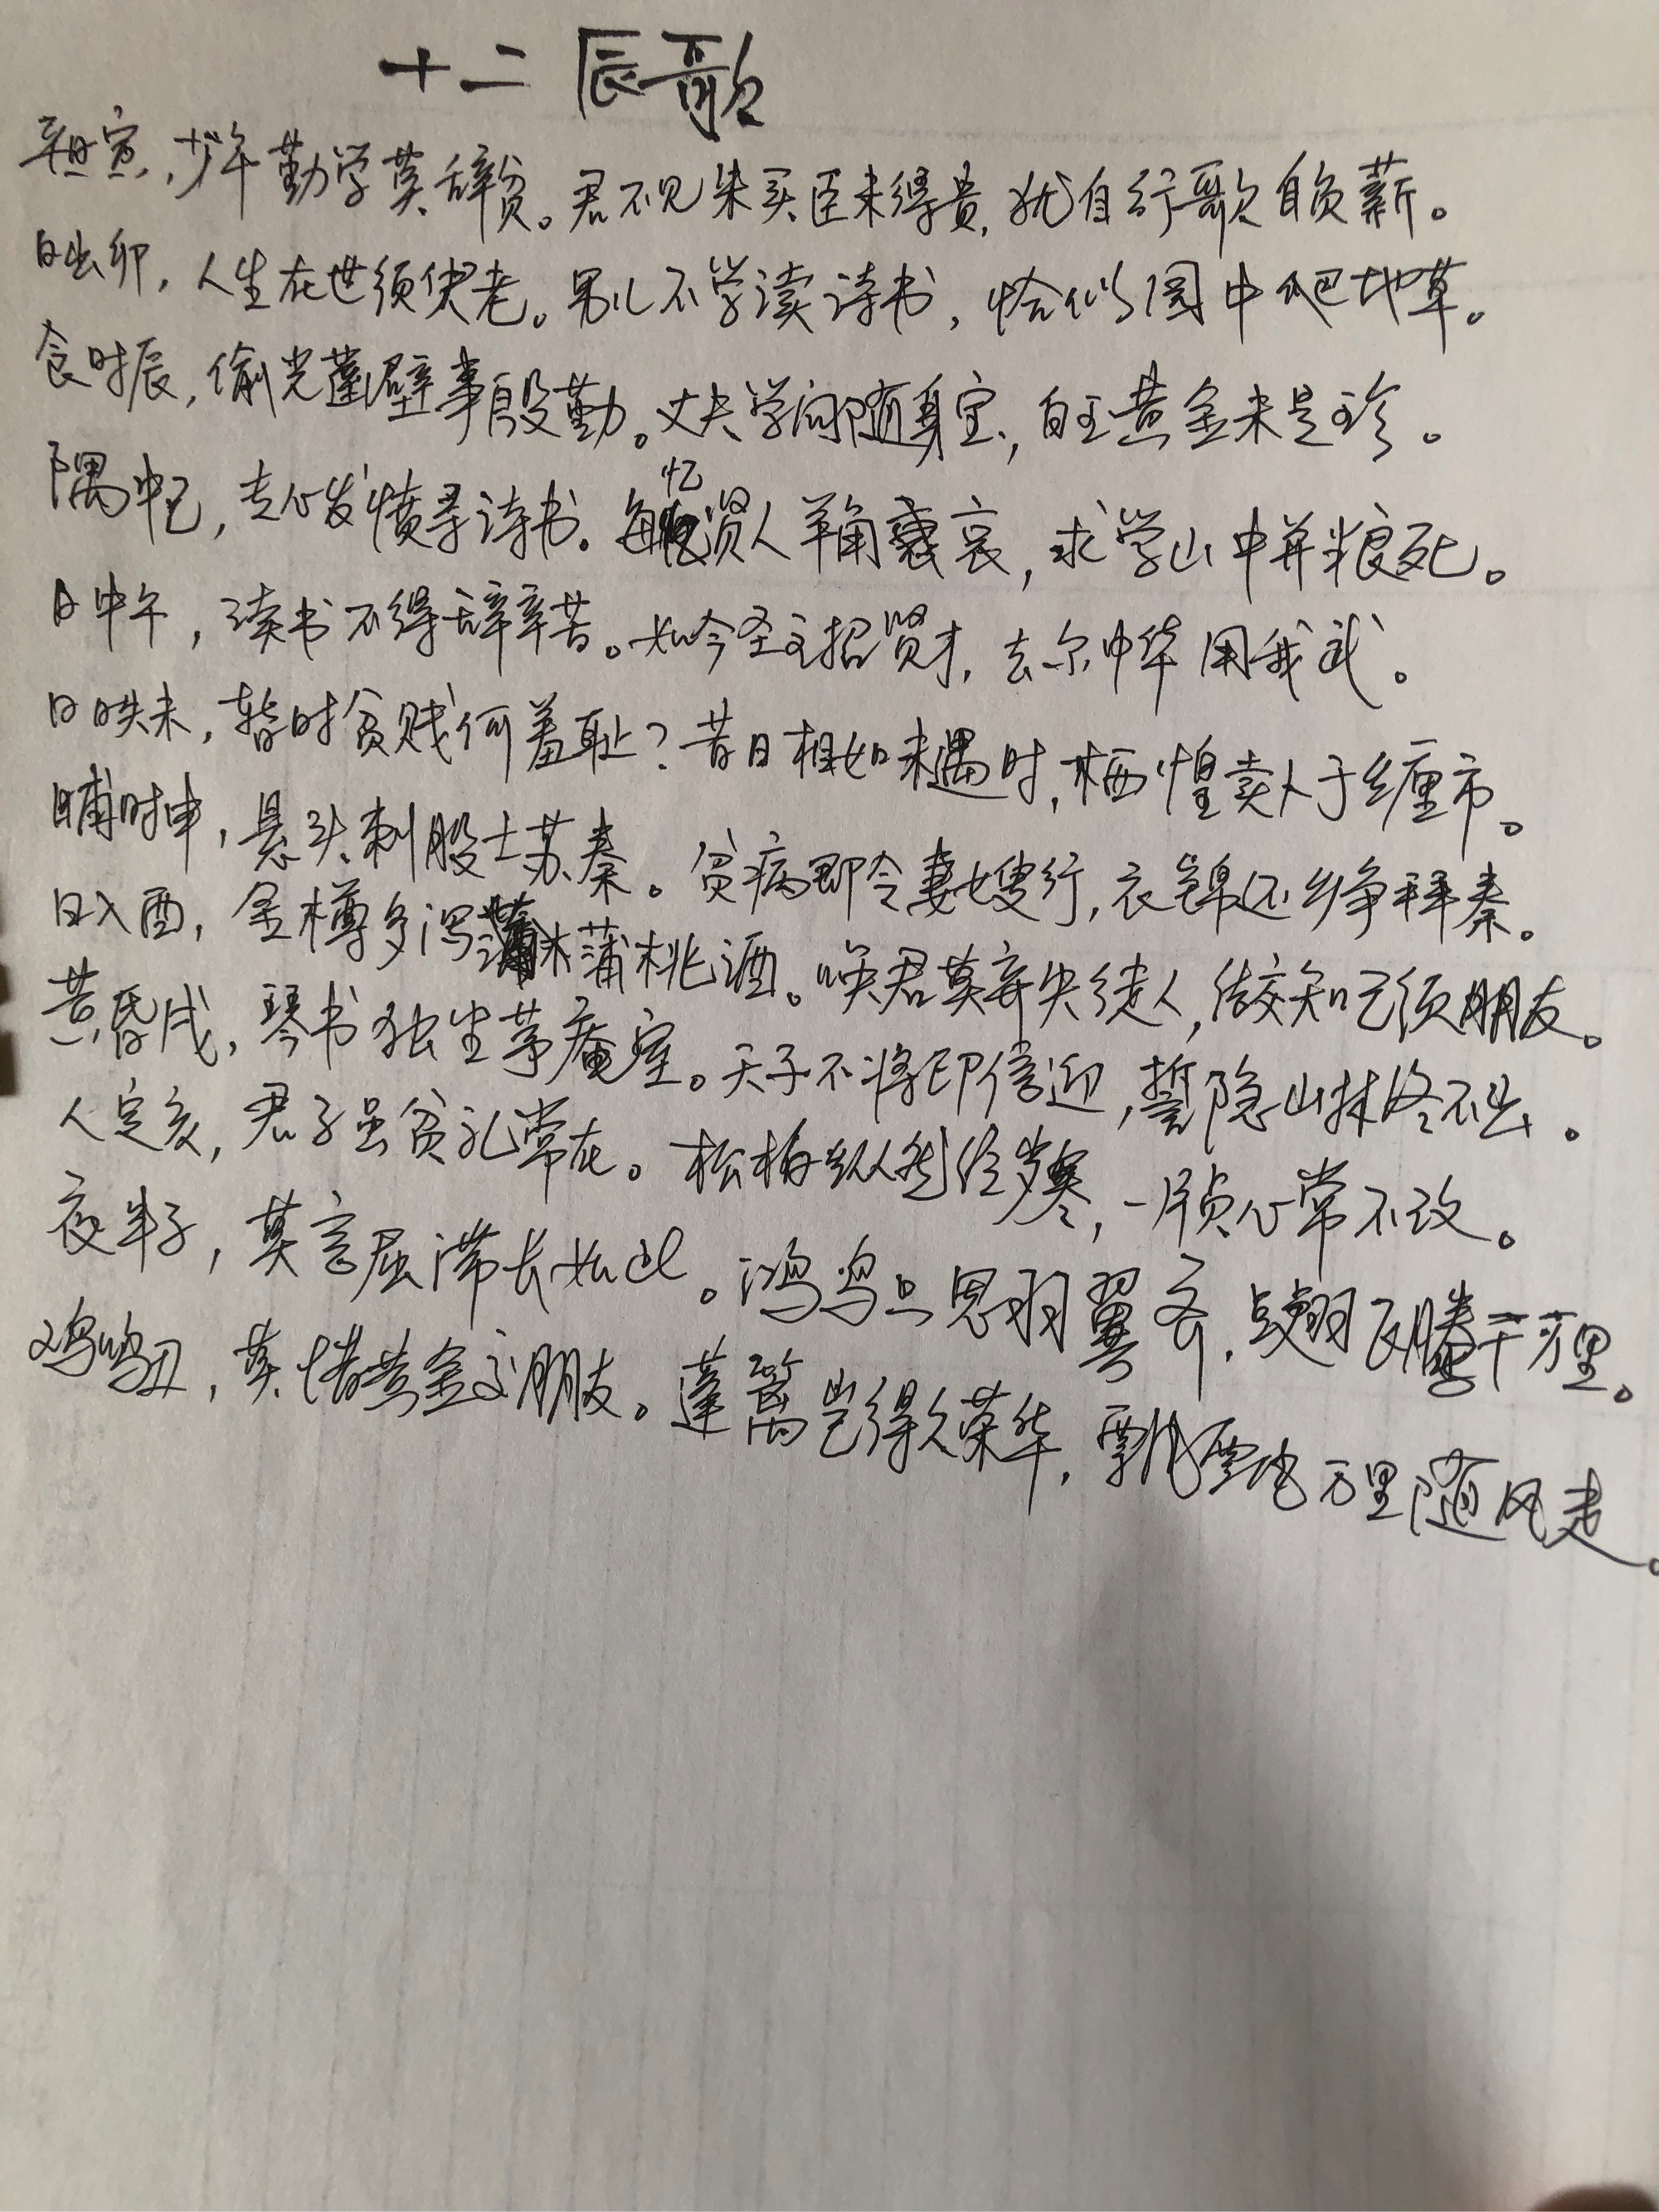 十二辰歌
平旦寅，少年勤学莫辞贫。君不见朱买臣未得贵，犹自行歌自负薪。
日出卯，人生在世须臾老。男儿不学读诗书，恰似园中爬地草。
食时辰，偷光凿壁事殷勤。丈夫学问随身宝，白玉黄金未是珍。
隅中巳，专心发愤寻诗书。每忆贤人羊角哀，求学山中并粮死。
日中午，读书不得辞辛苦。如今圣主招贤才，去尔中华用我武。
日昳未，暂时贫贱何羞耻？昔日相如未遇时，栖惶卖人于缠市。
晡时申，悬头刺股士苏秦。贫病即令妻嫂行，衣锦还乡争拜秦。
日入酉，金樽多泻蒲桃酒。唤君莫弃失途人，结交知己须朋友。
黄昏戌，琴书独坐茅庵室。天子不将印信迎，誓隐山林终不出。
人定亥，君子虽贫礼常在。松柏纵然经岁寒，一片贞心常不改。
夜半子，莫言屈滞长如此。鸿鸟只思羽翼齐，点翅飞腾千万里。
鸡鸣丑，莫惜黄金交朋友。蓬蒿岂得久荣华，飘飖万里随风走。